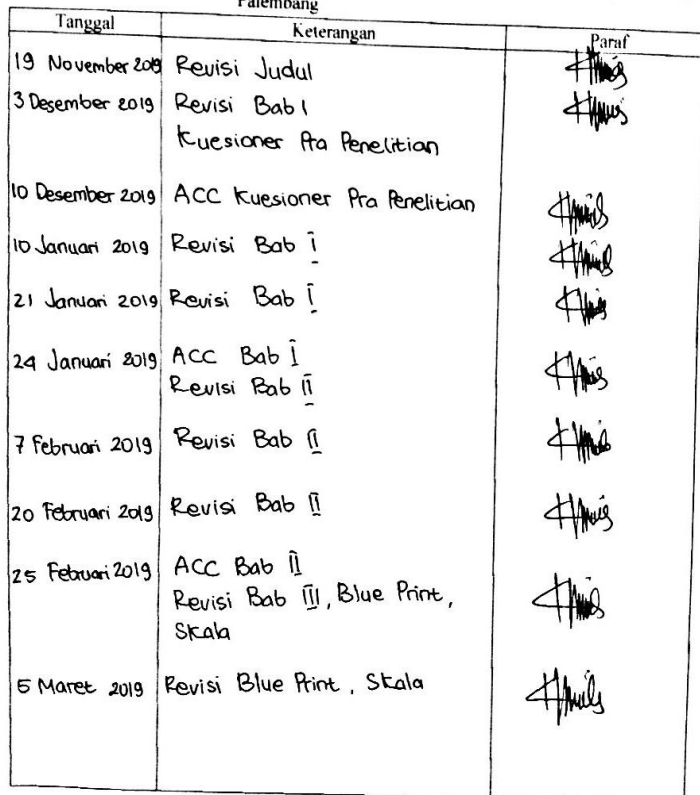 Palembang
Tanggal Keterangan Paraf
19 November 2019 Revisi Judul
3 Desember 2019 Revisi Bab I
Kuesioner Pra Penelitian
10 Desember 2019 ACC Kuesioner Pra Penelitian
10 Januari 2019 Revisi Bab I
21 Januari 2019 Revisi Bab I
24 Januari 2019 ACC Bab I
Revisi Bab II
7 Februari 2019 Revisi Bab II
20 Februari 2019 Revisi Bab II
25 Februari 2019 ACC Bab II
Revisi Bab III, Blue Print,
Skala
5 Maret 2019 Revisi Blue Print, Skala